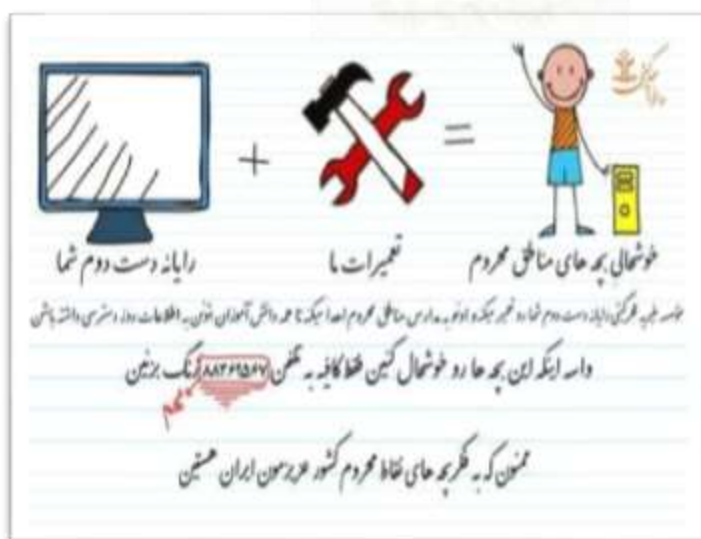 +
=
رایانه دست دوم شما
تعمیرات ما
خوشحالی بچه های مناطق محروم
موسسه خیریه فکر کنی رایانه دست دوم شما رو تعمیر میکنه و اونو به مدارس مناطق محروم اهدا میکنه تا همه دانش آموزان اون به اطلاعات روز دسترسی داشته باشن
واسه اینکه این بچه ها رو خوشحال کنین فقط کافیه به تلفن ۸۸۴۶۹۵۶۷ زنگ بزنین
ممنون که به فکر بچه های نقاط محروم کشور عزیزمون ایران هستین